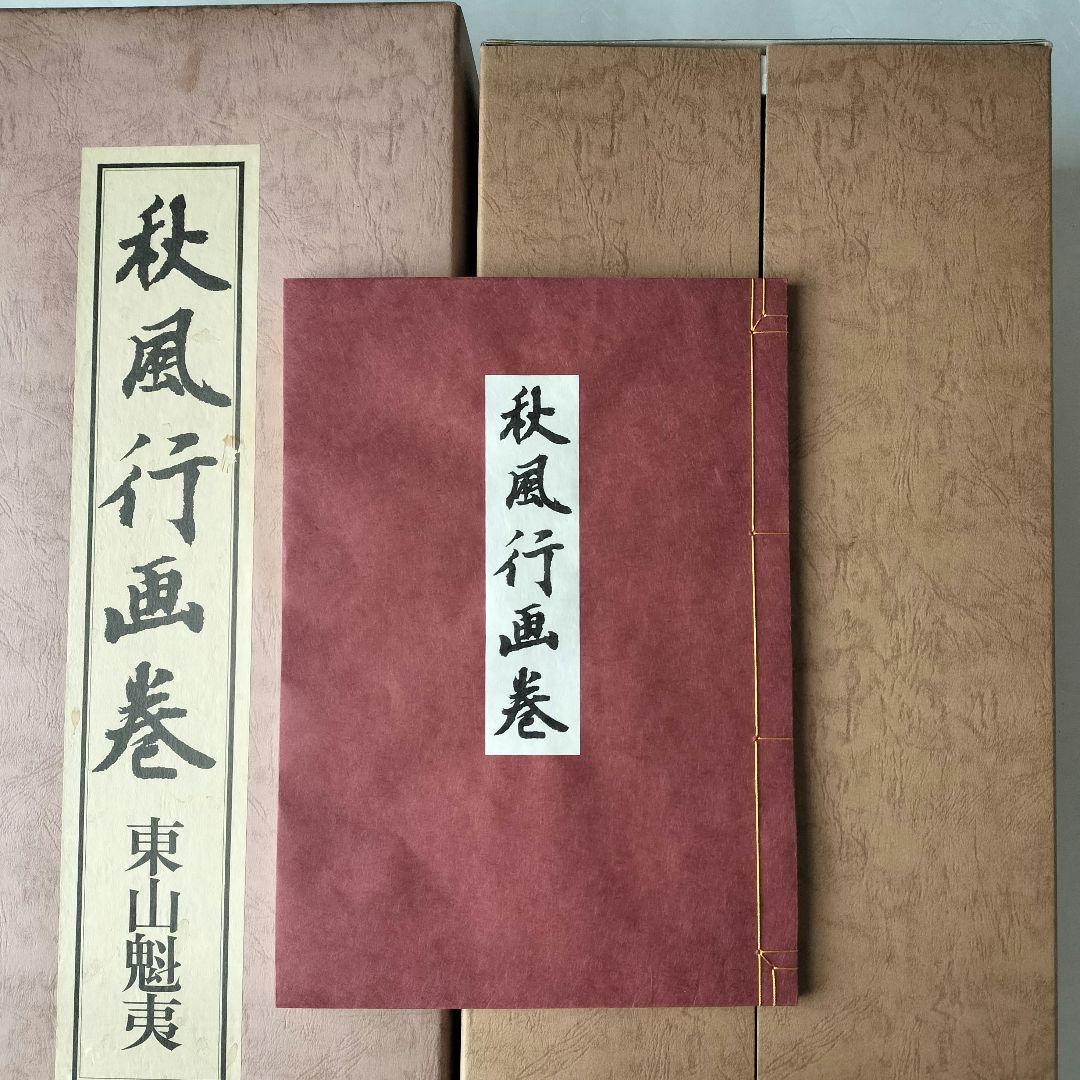 秋風行画巻
東山魁夷
秋風行画巻